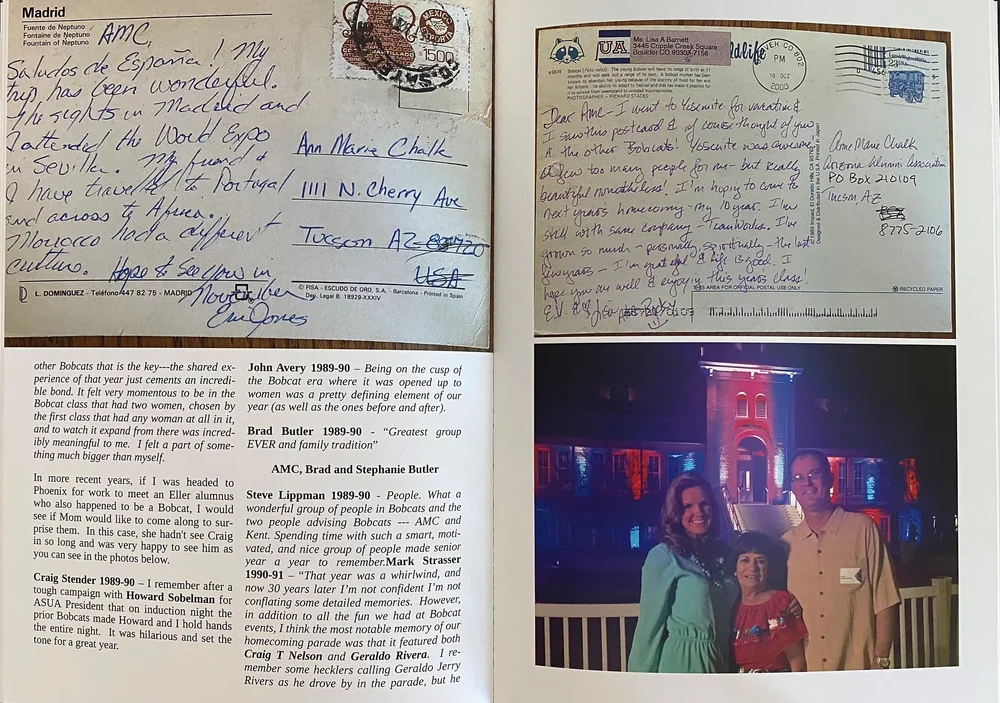 Madrid
Fuente de Neptuno
Fontaine de Neptune
Fountain of Neptuno
AMC,
Saludos de España! My
trip has been wonderful.
The sights in Madrid and
I attended the World Expo
in Sevilla. My friend &
I have travelled to Portugal
and across to Africa.
Morocco had a different
culture. Hope to see you in
November
Ann Marie Chalk
1111 N. Cherry Ave
Tucson AZ
USA
MEXICO
EXPORTA
1500
L. DOMINGUEZ - Teléfono 447 82 75 - MADRID
© FISA - ESCUDO DE ORO, S.A. - Barcelona - Printed in Spain
Dep. Legal B. 18929-XXXIV
other Bobcats that is the key---the shared ex-
perience of that year just cements an incredi-
ble bond. It felt very momentous to be in the
Bobcat class that had two women, chosen by
the first class that had any woman at all in it,
and to watch it expand from there was incred-
ibly meaningful to me. I felt a part of some-
thing much bigger than myself.
In more recent years, if I was headed to
Phoenix for work to meet an Eller alumnus
who also happened to be a Bobcat, I would
see if Mom would like to come along to sur-
prise them. In this case, she hadn't see Craig
in so long and was very happy to see him as
you can see in the photos below.
Craig Stender 1989-90 – I remember after a
tough campaign with Howard Sobelman for
ASUA President that on induction night the
prior Bobcats made Howard and I hold hands
the entire night. It was hilarious and set the
tone for a great year.
John Avery 1989-90 – Being on the cusp of
the Bobcat era where it was opened up to
women was a pretty defining element of our
year (as well as the ones before and after).
Brad Butler 1989-90 - “Greatest group
EVER and family tradition”
AMC, Brad and Stephanie Butler
Steve Lippman 1989-90 - People. What a
wonderful group of people in Bobcats and the
two people advising Bobcats --- AMC and
Kent. Spending time with such a smart, moti-
vated, and nice group of people made senior
year a year to remember.Mark Strasser
1990-91 – “That year was a whirlwind, and
now 30 years later I'm not confident I'm not
conflating some detailed memories. However,
in addition to all the fun we had at Bobcat
events, I think the most notable memory of our
homecoming parade was that it featured both
Craig T Nelson and Geraldo Rivera. I re-
member some hecklers calling Geraldo Jerry
Rivers as he drove by in the parade, but he
UA
Ms. Lisa A Barnett
3445 Cripple Creek Square
Boulder CO 80303-7156
dlife
DENVER CO 802
PM
10 OCT
2000
23
Dear AMC - I went to Yosemite for vacation &
I saw this postcard & of course thought of you
& the other Bobcats! Yosemite was awesome,
a few too many people for me - but really
beautiful nonetheless! I'm hoping to come to
next year's homecoming - my 10 year. I'm
still with same company - TeamWorks. I've
grown so much - personally, spiritually - the last
few years - I'm grateful & life is good. I
hope you are well & enjoying this year's class!
Anne Marie Chalk
Arizona Alumni Association
PO Box 210109
Tucson, AZ
8775-2106
THIS AREA FOR OFFICIAL POSTAL USE ONLY
RECYCLED PAPER